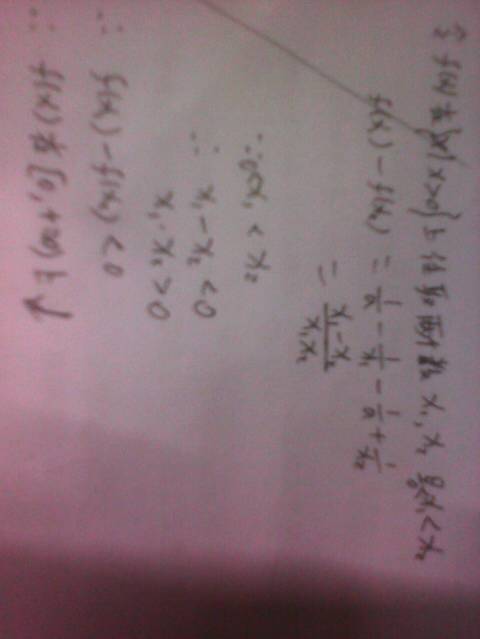 令 f(x) 在{x|x>0}上任意两个数 x₁, x₂ 且0<x₁<x₂
f(x₁) - f(x₂) = 1/a - 1/x₁ - 1/a + 1/x₂
= (x₁-x₂)/(x₁x₂)
∵0<x₁<x₂
∴ x₁-x₂<0
x₁·x₂>0
∴ f(x₁)-f(x₂)<0
∴ f(x)在[0,+∞)上↑